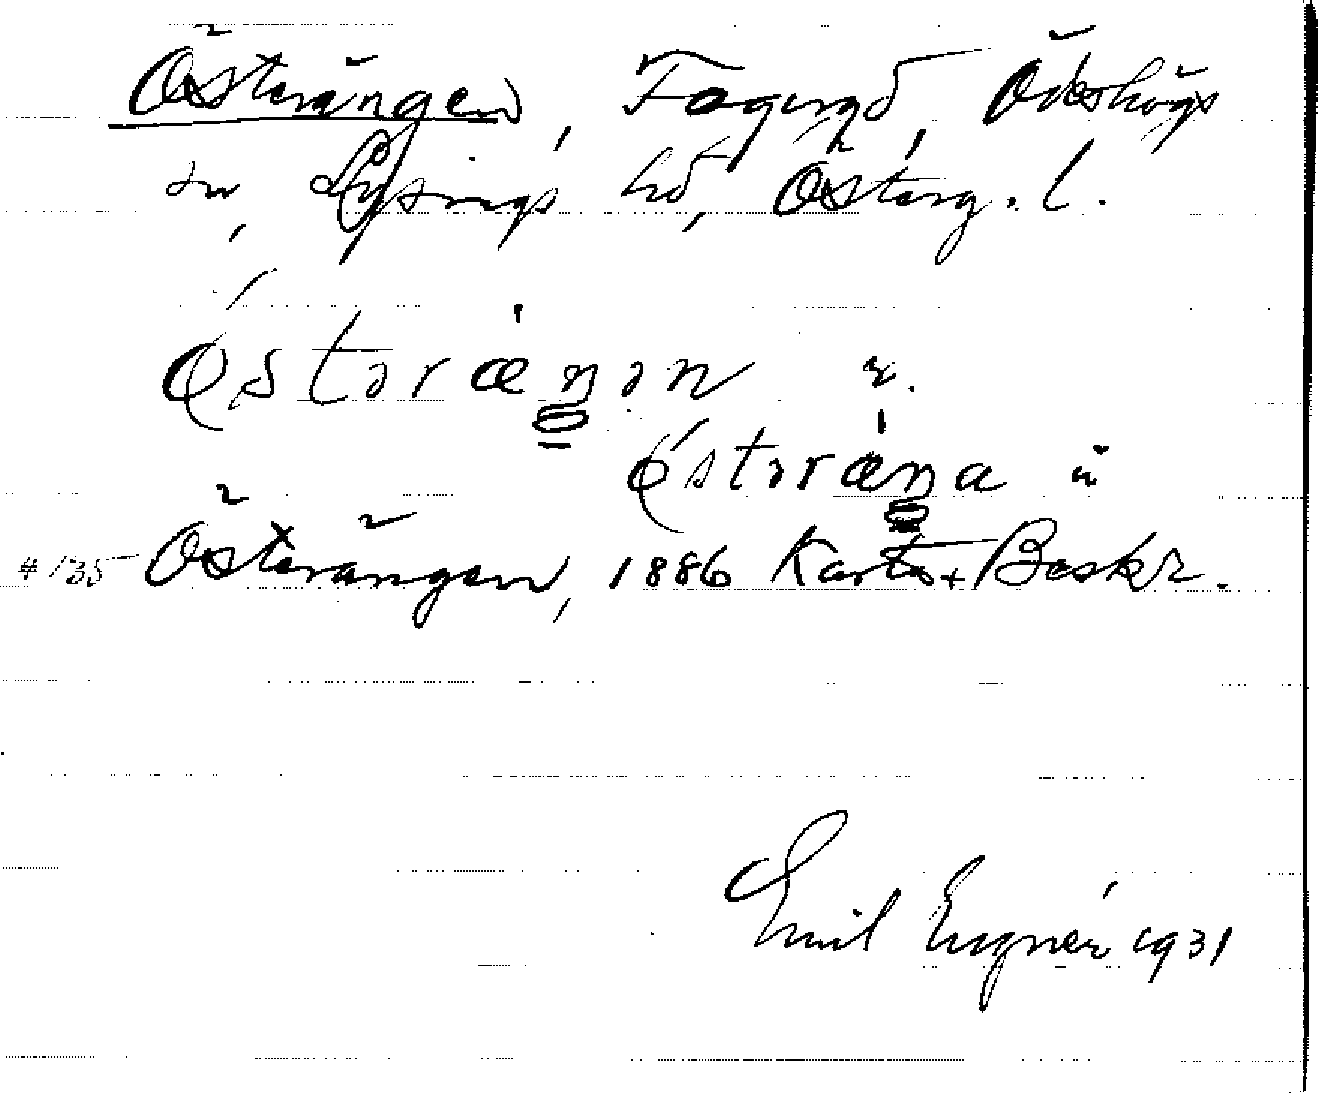 Österängen, Fagery͡d, Ödeshögs
sn, Lysings hd, Österg. l.
ǿstəræŋən r.
ǿstəræŋa ä
4/35 Österängen, 1886 Karta + Beskr.
Emil Engnér 1931